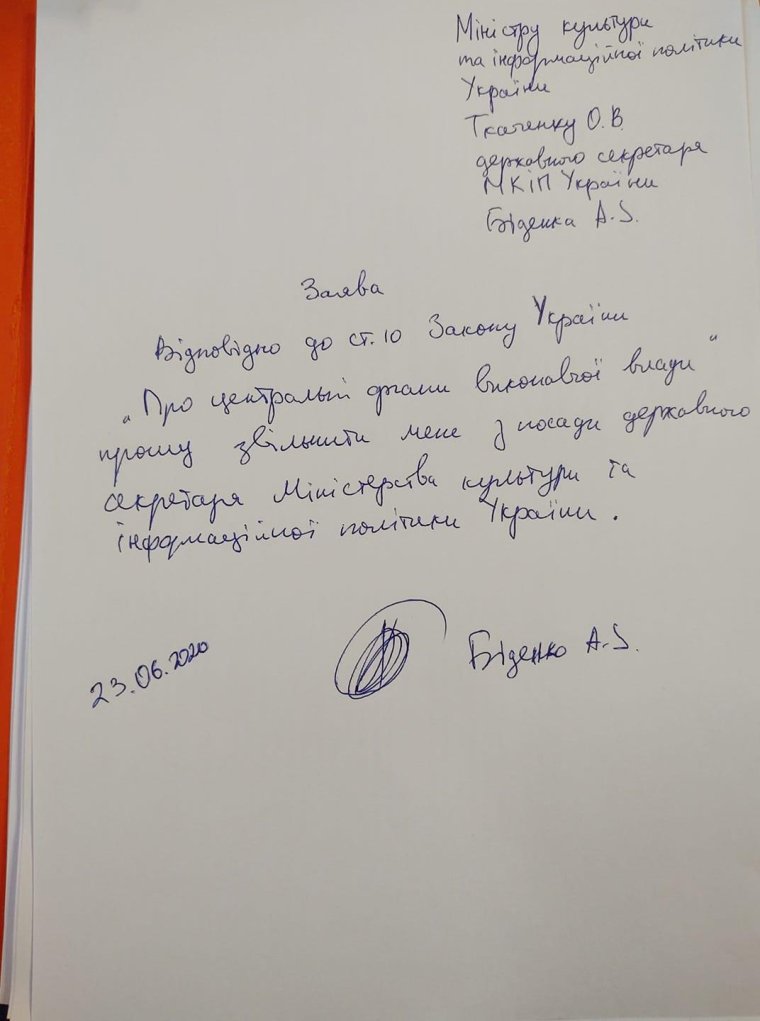 Міністру культури
та інформаційної політики
України
Ткаченку О.В.
державного секретаря
МКІП України
Біденка А.І.
Заява
Відповідно до ст.10 Закону України
„Про центральні органи виконавчої влади"
прошу звільнити мене з посади державного
секретаря Міністерства культури та
інформаційної політики України.
23.06.2020
Біденко А.І.